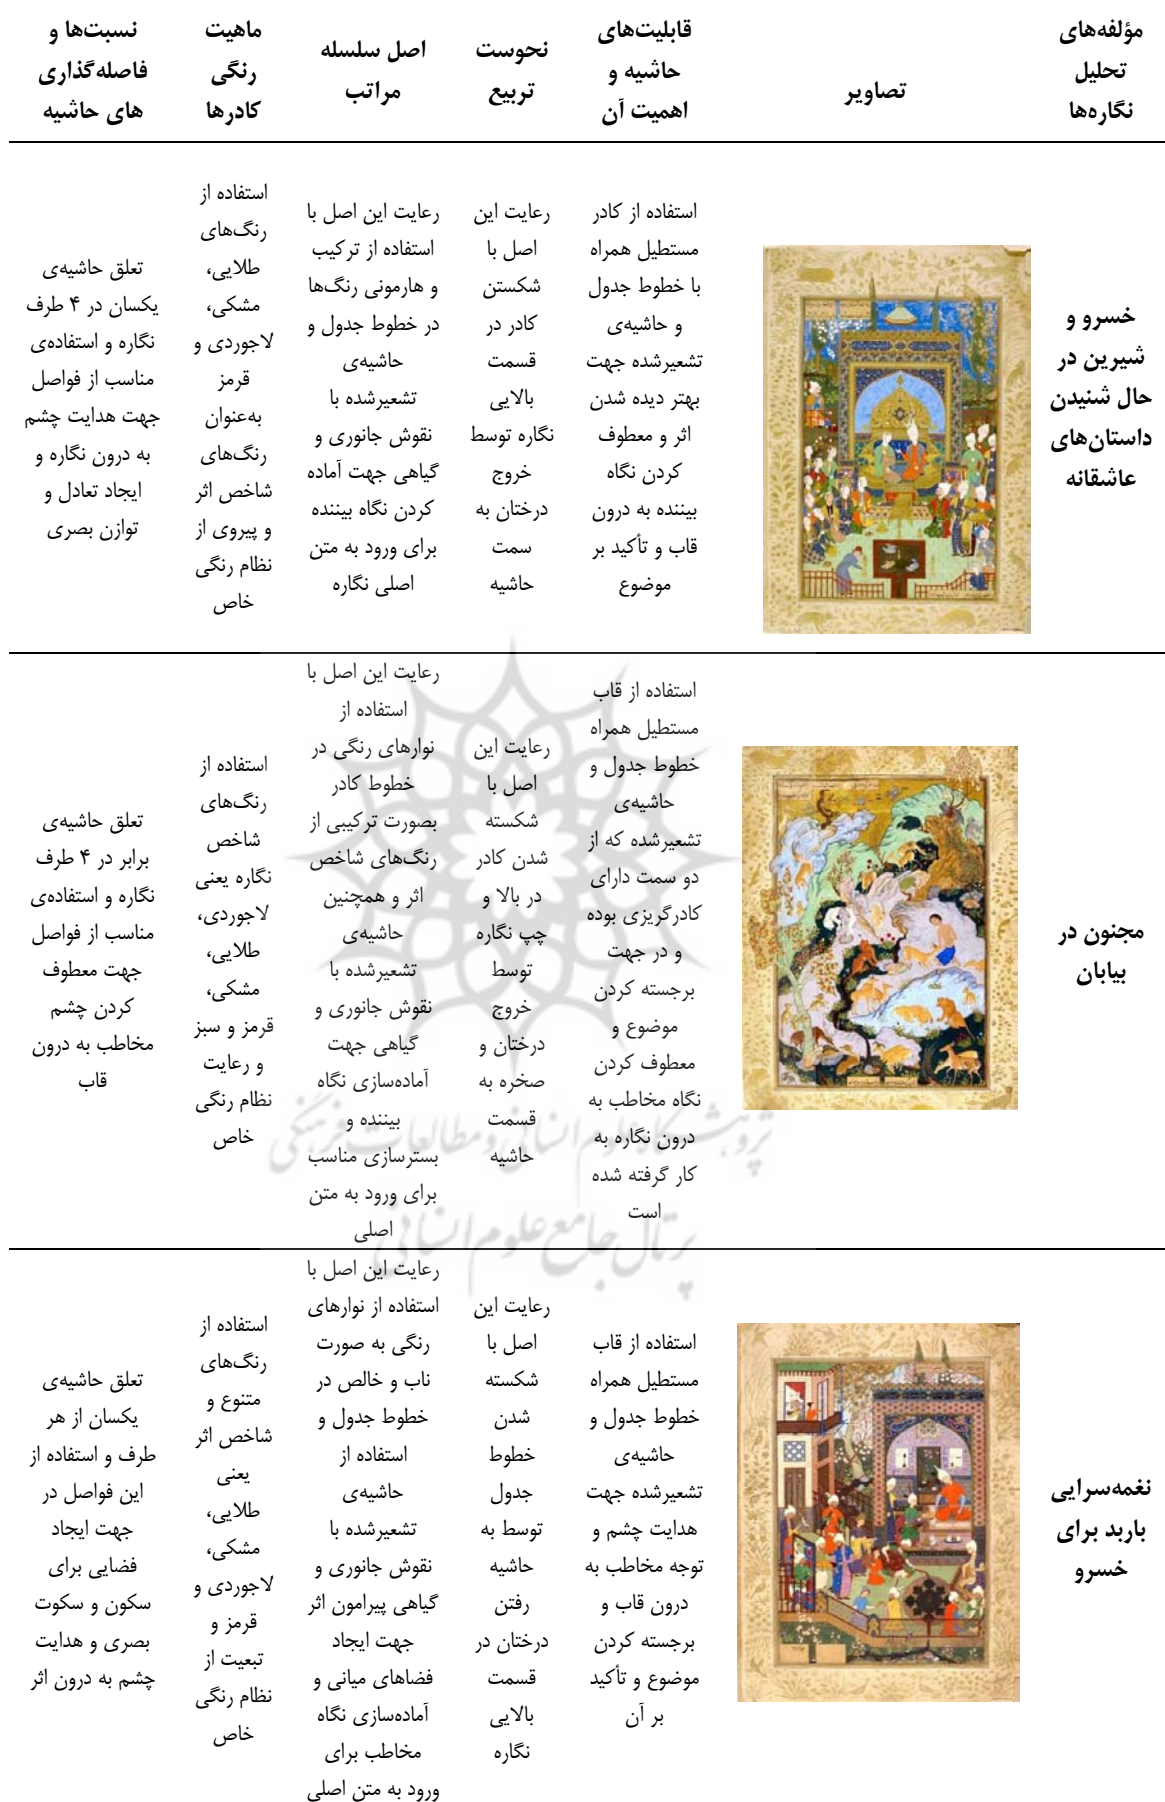 مؤلفه‌های
تحلیل
نگاره‌ها
تصاویر
قابلیت‌های
حاشیه و
اهمیت آن
نحوست
تربیع
اصل سلسله
مراتب
ماهیت
رنگی
کادرها
نسبت‌ها و
فاصله‌گذاری
های حاشیه
خسرو و
شیرین در
حال شنیدن
داستان‌های
عاشقانه
استفاده از کادر
مستطیل همراه
با خطوط جدول
و حاشیه‌ی
تشعیرشده جهت
بهتر دیده شدن
اثر و معطوف
کردن نگاه
بیننده به درون
قاب و تأکید بر
موضوع
رعایت این
اصل با
شکستن
کادر در
قسمت
بالایی
نگاره توسط
خروج
درختان به
سمت
حاشیه
رعایت این اصل با
استفاده از ترکیب
و هارمونی رنگ‌ها
در خطوط جدول و
حاشیه‌ی
تشعیرشده با
نقوش جانوری و
گیاهی جهت آماده
کردن نگاه بیننده
برای ورود به متن
اصلی نگاره
استفاده از
رنگ‌های
طلایی،
مشکی،
لاجوردی و
قرمز
به‌عنوان
رنگ‌های
شاخص اثر
و پیروی از
نظام رنگی
خاص
تعلق حاشیه‌ی
یکسان در ۴ طرف
نگاره و استفاده‌ی
مناسب از فواصل
جهت هدایت چشم
به درون نگاره و
ایجاد تعادل و
توازن بصری
مجنون در
بیابان
استفاده از قاب
مستطیل همراه
خطوط جدول و
حاشیه‌ی
تشعیرشده که از
دو سمت دارای
کادرگریزی بوده
و در جهت
برجسته کردن
موضوع و
معطوف کردن
نگاه مخاطب به
درون نگاره به
کار گرفته شده
است
رعایت این
اصل با
شکسته
شدن کادر
در بالا و
چپ نگاره
توسط
خروج
درختان و
صخره به
قسمت
حاشیه
رعایت این اصل با
استفاده از
نوارهای رنگی در
خطوط کادر
بصورت ترکیبی از
رنگ‌های شاخص
اثر و همچنین
حاشیه‌ی
تشعیرشده با
نقوش جانوری و
گیاهی جهت
آماده‌سازی نگاه
بیننده و
بسترسازی مناسب
برای ورود به متن
اصلی
استفاده از
رنگ‌های
شاخص
نگاره یعنی
لاجوردی،
طلایی،
مشکی،
قرمز و سبز
و رعایت
نظام رنگی
خاص
تعلق حاشیه‌ی
برابر در ۴ طرف
نگاره و استفاده‌ی
مناسب از فواصل
جهت معطوف
کردن چشم
مخاطب به درون
قاب
پژوهشگاه علوم انسانی و مطالعات فرهنگی
پرتال جامع علوم انسانی
نغمه‌سرایی
باربد برای
خسرو
استفاده از قاب
مستطیل همراه
خطوط جدول و
حاشیه‌ی
تشعیرشده جهت
هدایت چشم و
توجه مخاطب به
درون قاب و
برجسته کردن
موضوع و تأکید
بر آن
رعایت این
اصل با
شکسته
شدن
خطوط
جدول
توسط به
حاشیه
رفتن
درختان در
قسمت
بالایی
نگاره
رعایت این اصل با
استفاده از نوارهای
رنگی به صورت
ناب و خالص در
خطوط جدول و
استفاده از
حاشیه‌ی
تشعیرشده با
نقوش جانوری و
گیاهی پیرامون اثر
جهت ایجاد
فضاهای میانی و
آماده‌سازی نگاه
مخاطب برای
ورود به متن اصلی
استفاده از
رنگ‌های
متنوع و
شاخص اثر
یعنی
طلایی،
مشکی،
لاجوردی و
قرمز و
تبعیت از
نظام رنگی
خاص
تعلق حاشیه‌ی
یکسان از هر
طرف و استفاده از
این فواصل در
جهت ایجاد
فضایی برای
سکون و سکوت
بصری و هدایت
چشم به درون اثر